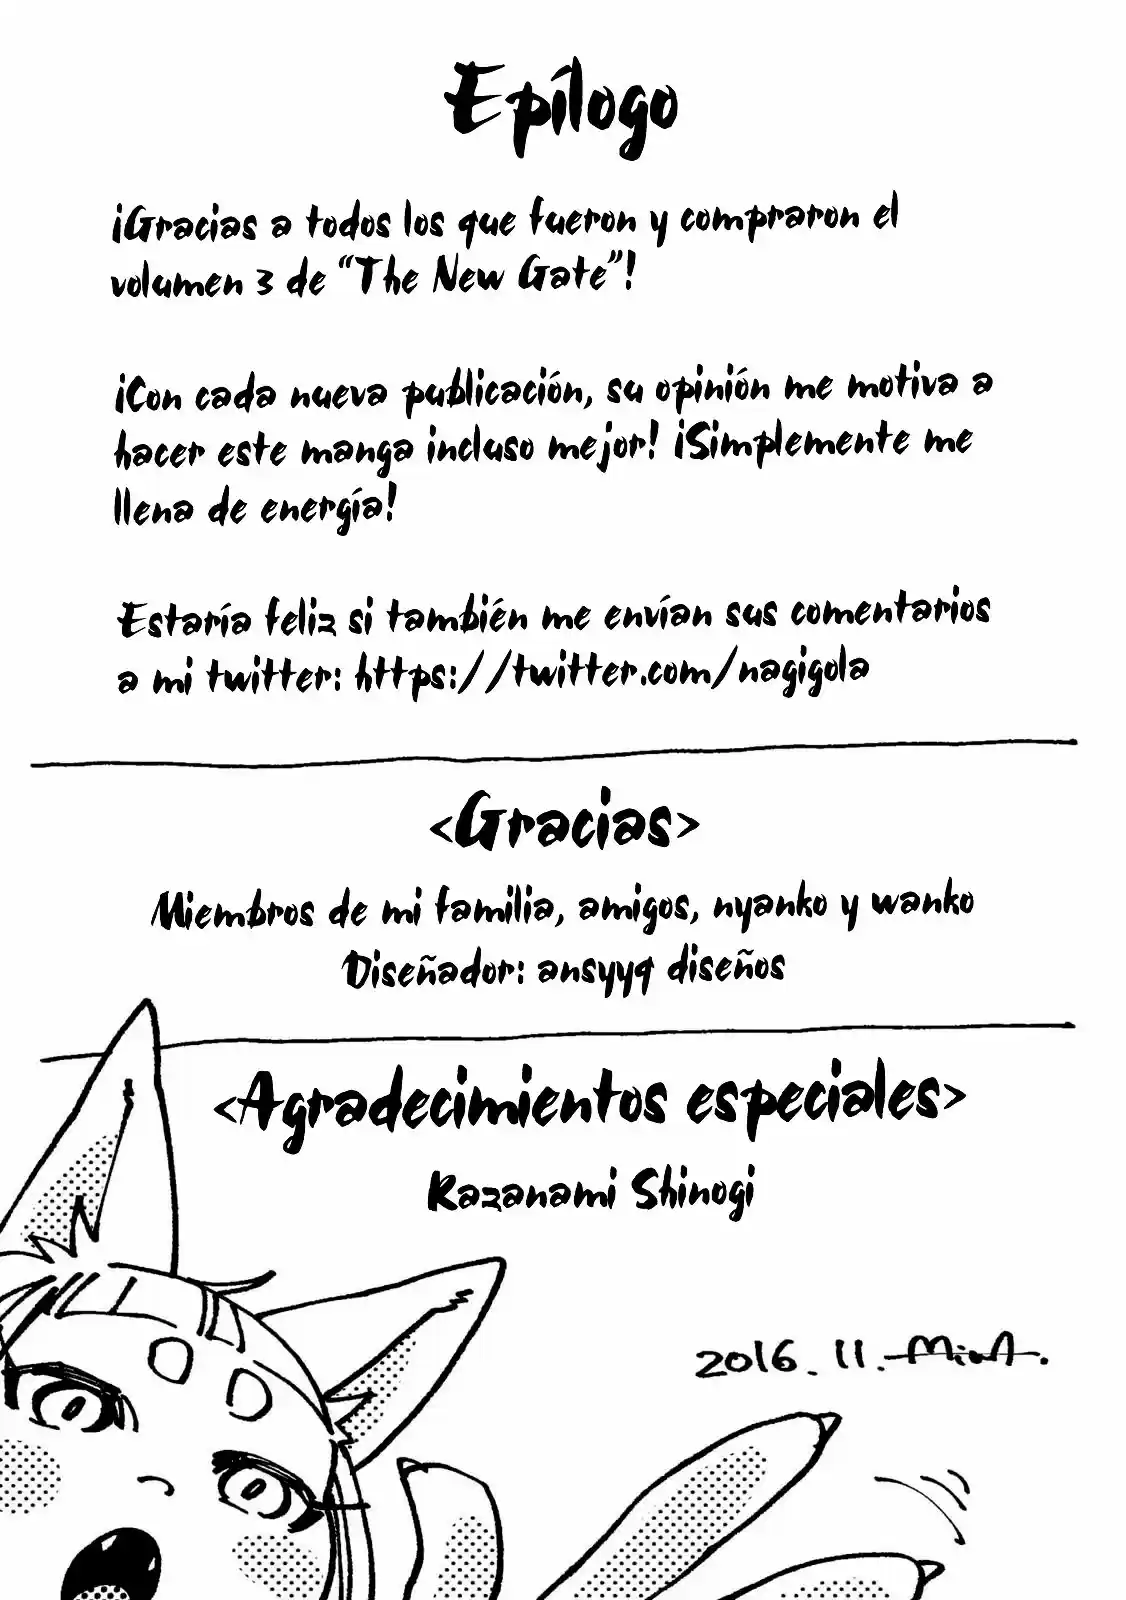 Epílogo
¡Gracias a todos los que fueron y compraron el
volumen 3 de “The New Gate”!
¡Con cada nueva publicación, su opinión me motiva a
hacer este manga incluso mejor! ¡Simplemente me
llena de energía!
Estaría feliz si también me envían sus comentarios
a mi twitter: https://twitter.com/nagigola
<Gracias>
Miembros de mi familia, amigos, nyanko y wanko
Diseñador: ansyyq diseños
<Agradecimientos especiales>
Kazanami Shinogi
2016.11.